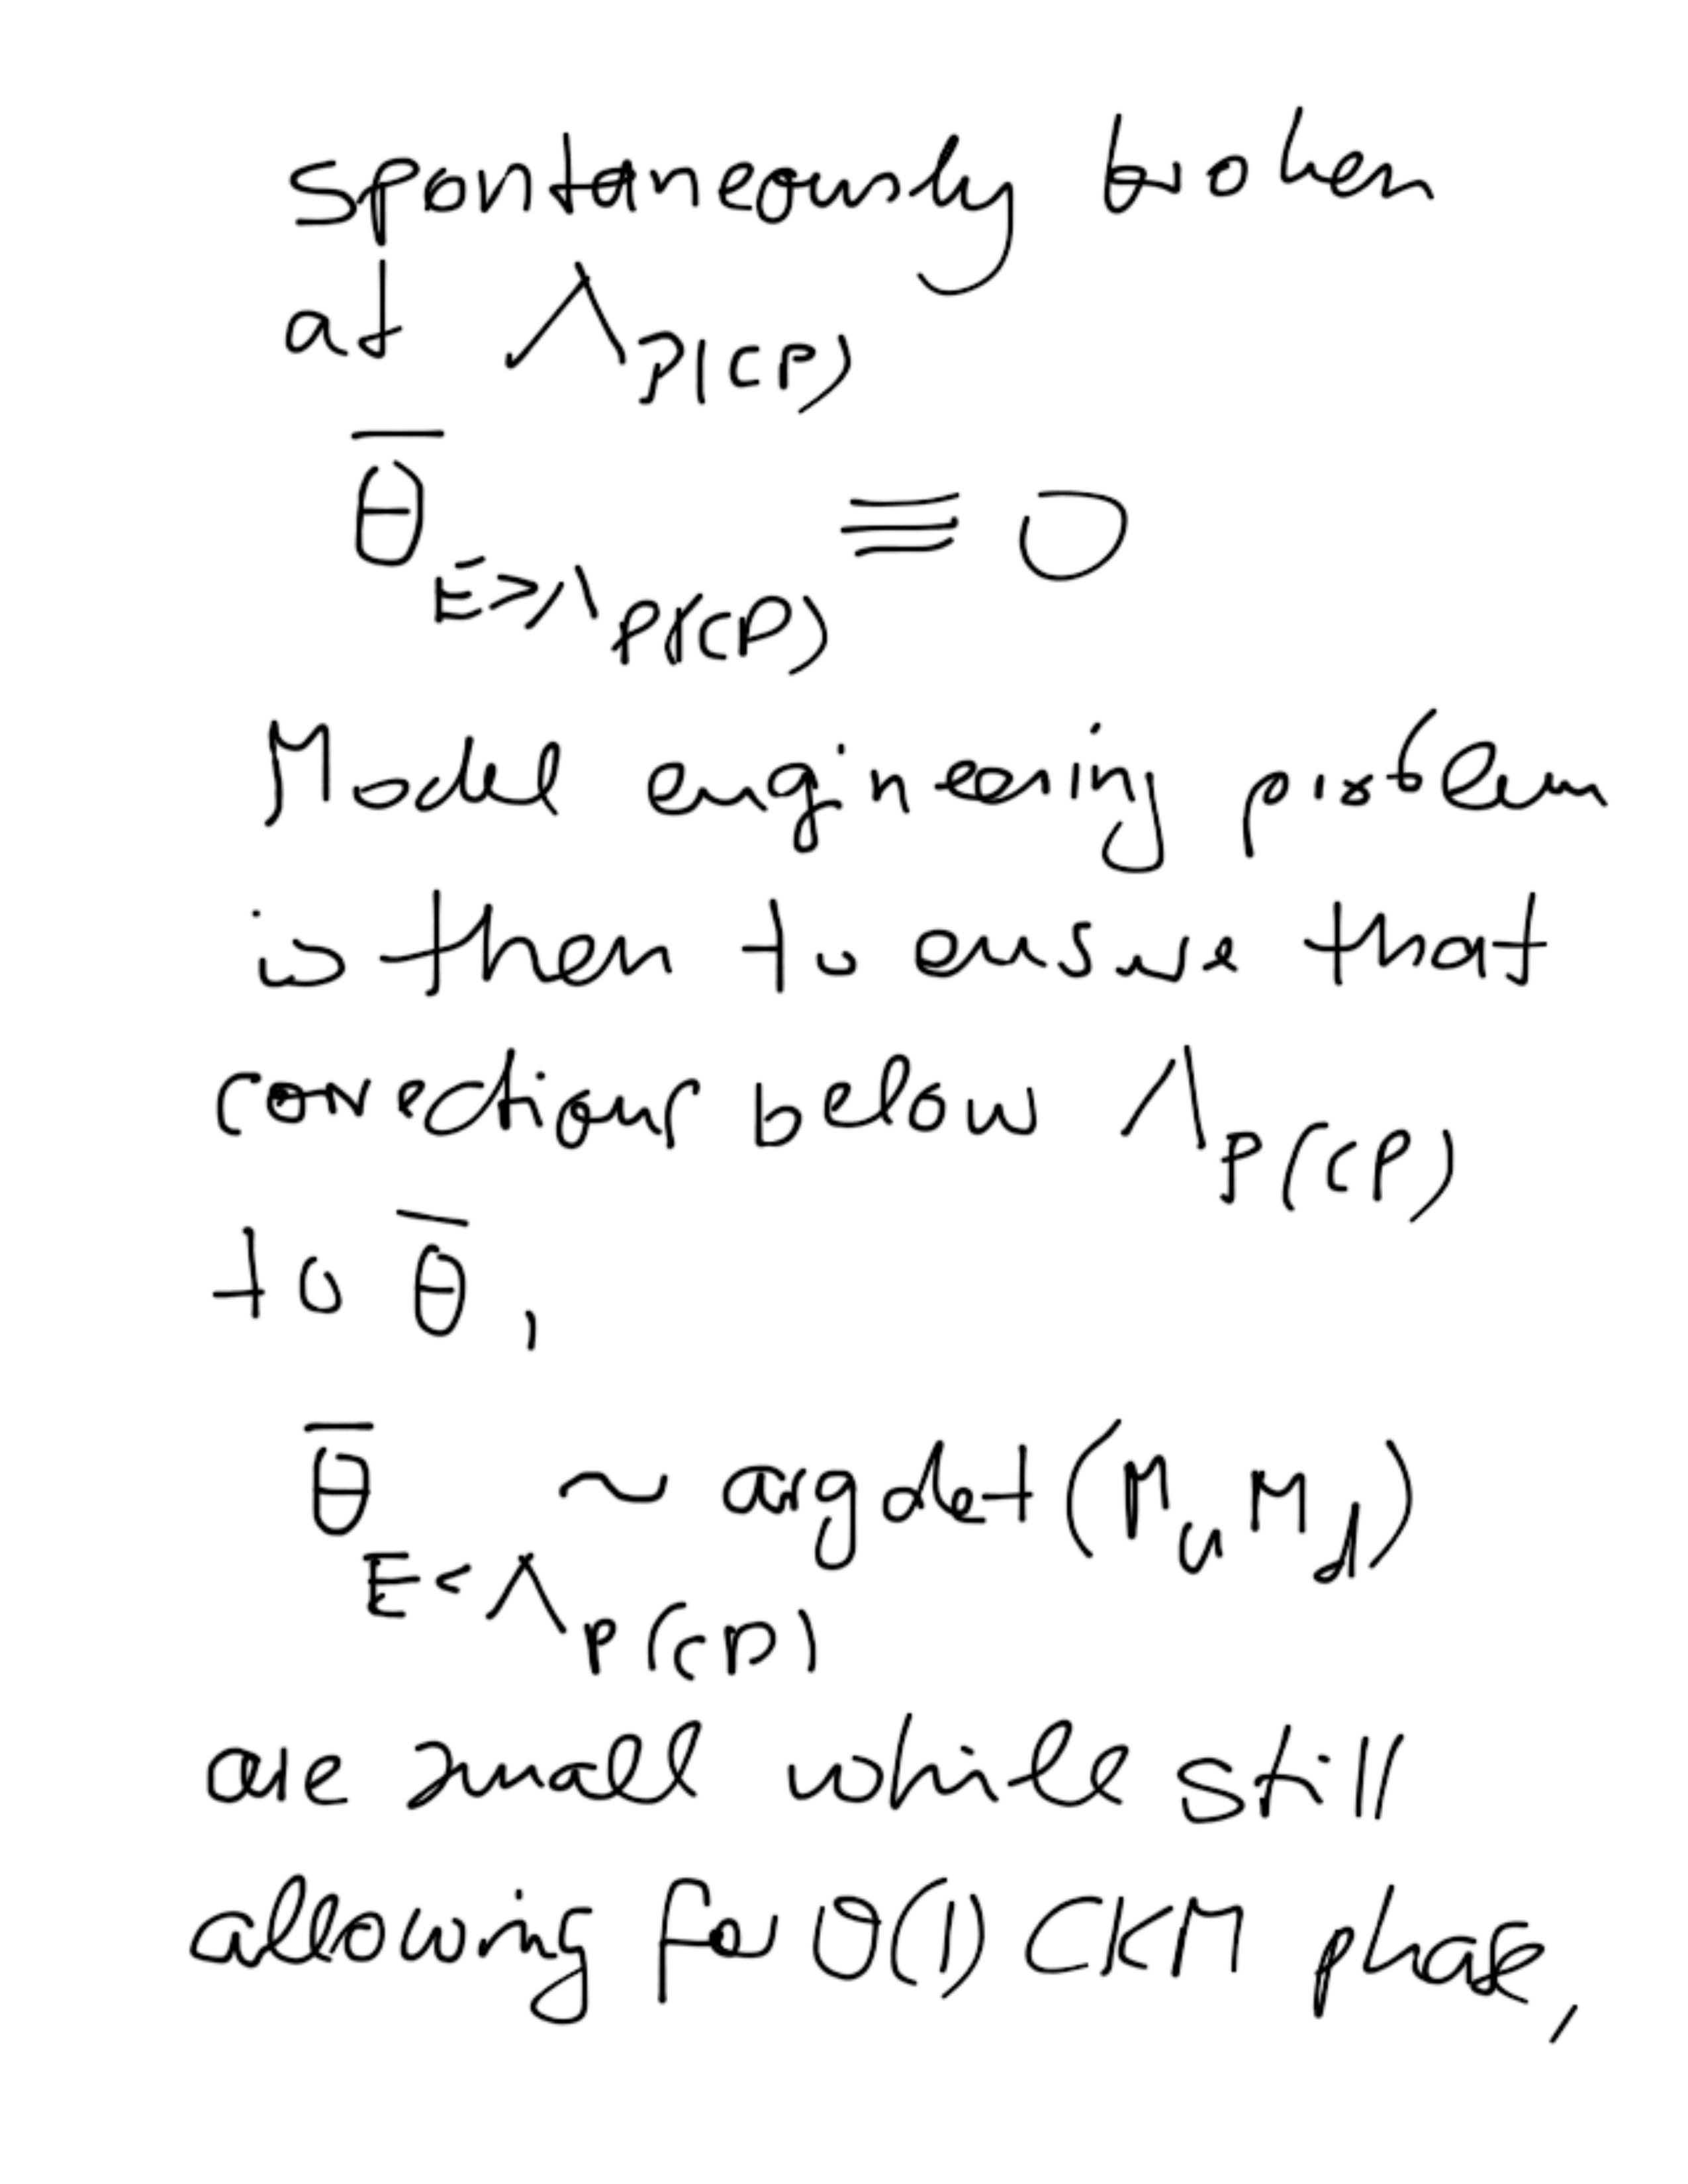 spontaneously broken
at Λ_P(CP)
θ̄_E>Λ_P(CP) ≡ 0
Model engineering problem
is then to ensure that
corrections below Λ_P(CP)
to θ̄,
θ̄_E<Λ_P(CP) ~ arg det(M_u M_d)
are small while still
allowing for O(1) CKM phase,